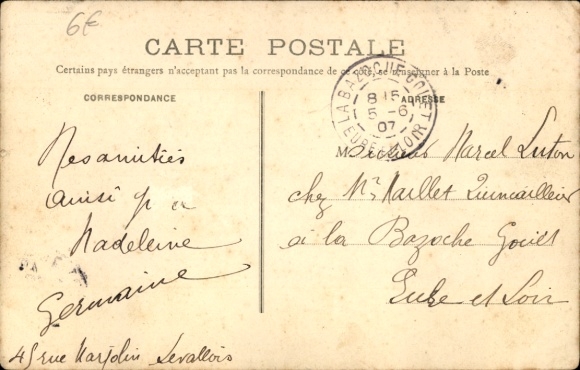 6€
CARTE POSTALE
Certains pays étrangers n'acceptant pas la correspondance de ce côté, se renseigner à la Poste
CORRESPONDANCE
ADRESSE
LA BAZOCHE-GOUET
8 15
5 -6
07
EURE ET LOIR
Mes amitiés
ainsi
Madeleine
Germaine
45 rue Marjolin Levallois
Monsieur Marcel Luton
chez Mr Maillet Quincailler
à la Bazoche Gouët
Eure et Loir